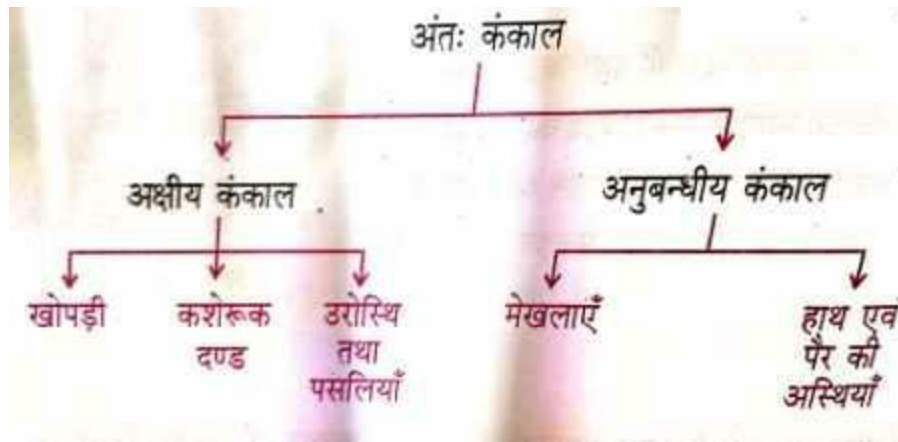 अंतः कंकाल
अक्षीय कंकाल
अनुबन्धीय कंकाल
खोपड़ी
कशेरूक
दण्ड
उरोस्थि
तथा
पसलियाँ
मेखलाएँ
हाथ एवं
पैर की
अस्थियाँ